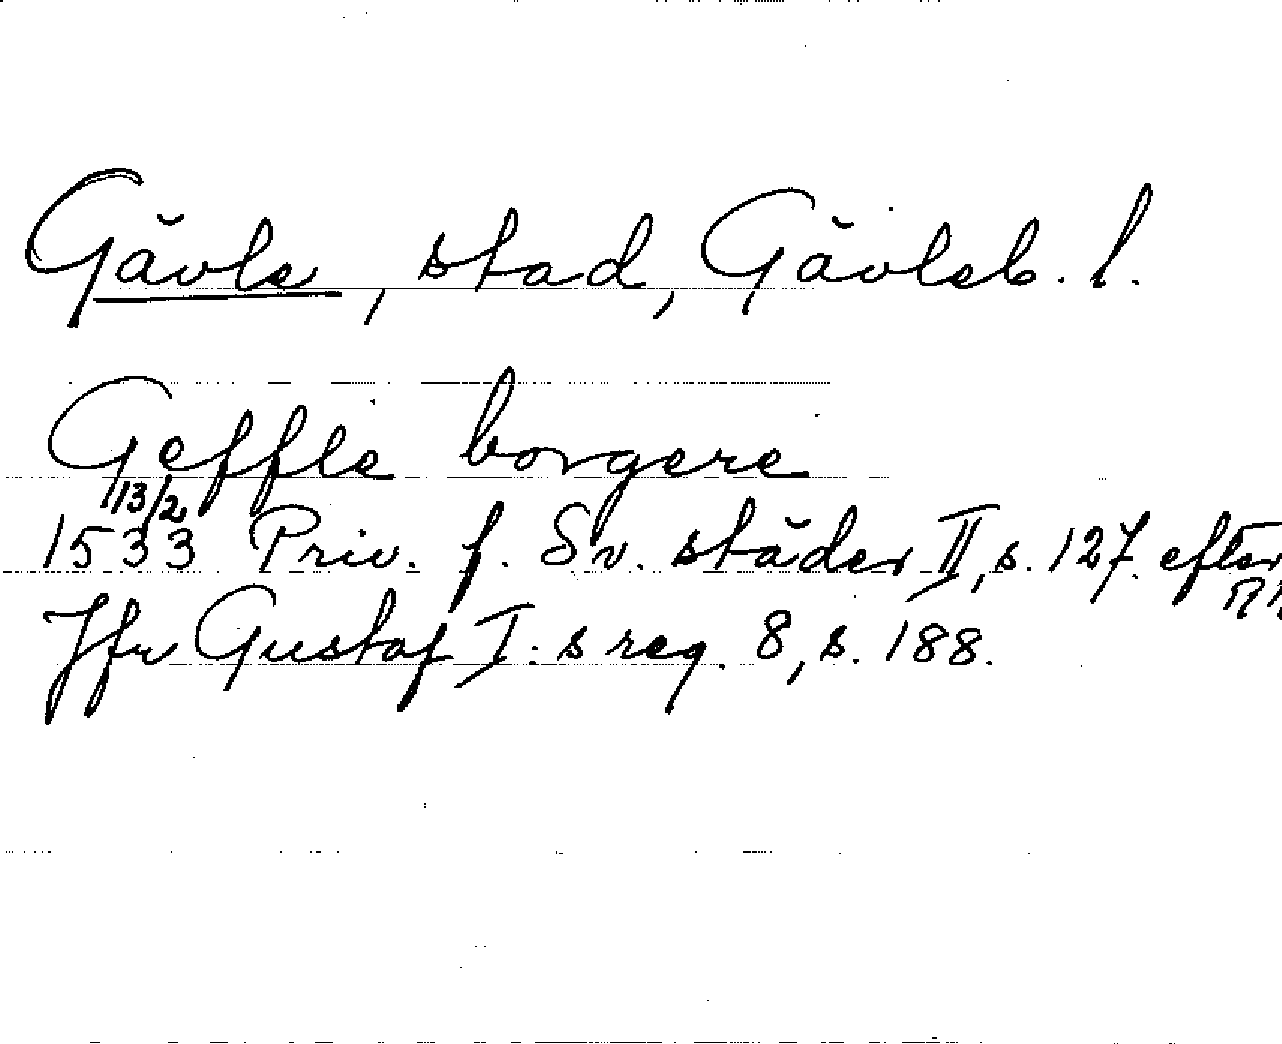 Gävle, stad, Gävleb. l.
Geffle borgere
13/2
1533 Priv. f. Sv. städer II, s. 127. efter
RR
Jfr Gustaf I:s reg. 8, s. 188.